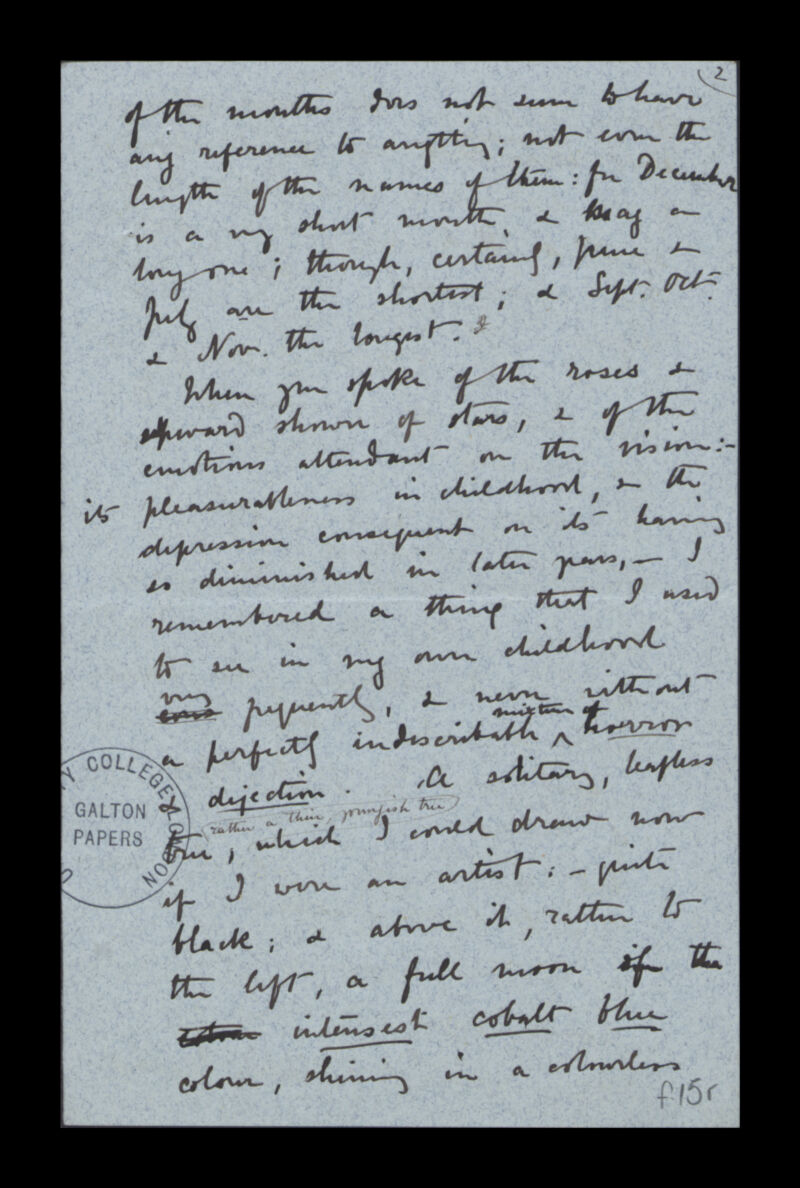 2
of the months does not seem to have
any reference to anything; not even the
length of the names of them: for December
is a very short month, & May a
long one; though, certainly, June &
July are the shortest; & Sept. Oct.
& Nov. the longest.
When you spoke of the roses &
upward shower of stars, & of the
emotions attendant on the vision:-
its pleasurableness in childhood, & the
depression consequent on its having
so diminished in later years, - I
remembered a thing that I used
to see in my own childhood
very
frequently, & never without
mixture of
a perfectly indescribable ^ horror
& dejection. A solitary, leafless
(rather a thin, youngish tree)
tree, which I could draw now
if I were an artist: - quite
black; & above it, rather to
the left, a full moon of the
colour intensest cobalt blue
colour, shining in a colourless
UNIVERSITY COLLEGE LONDON
GALTON
PAPERS
f.15r